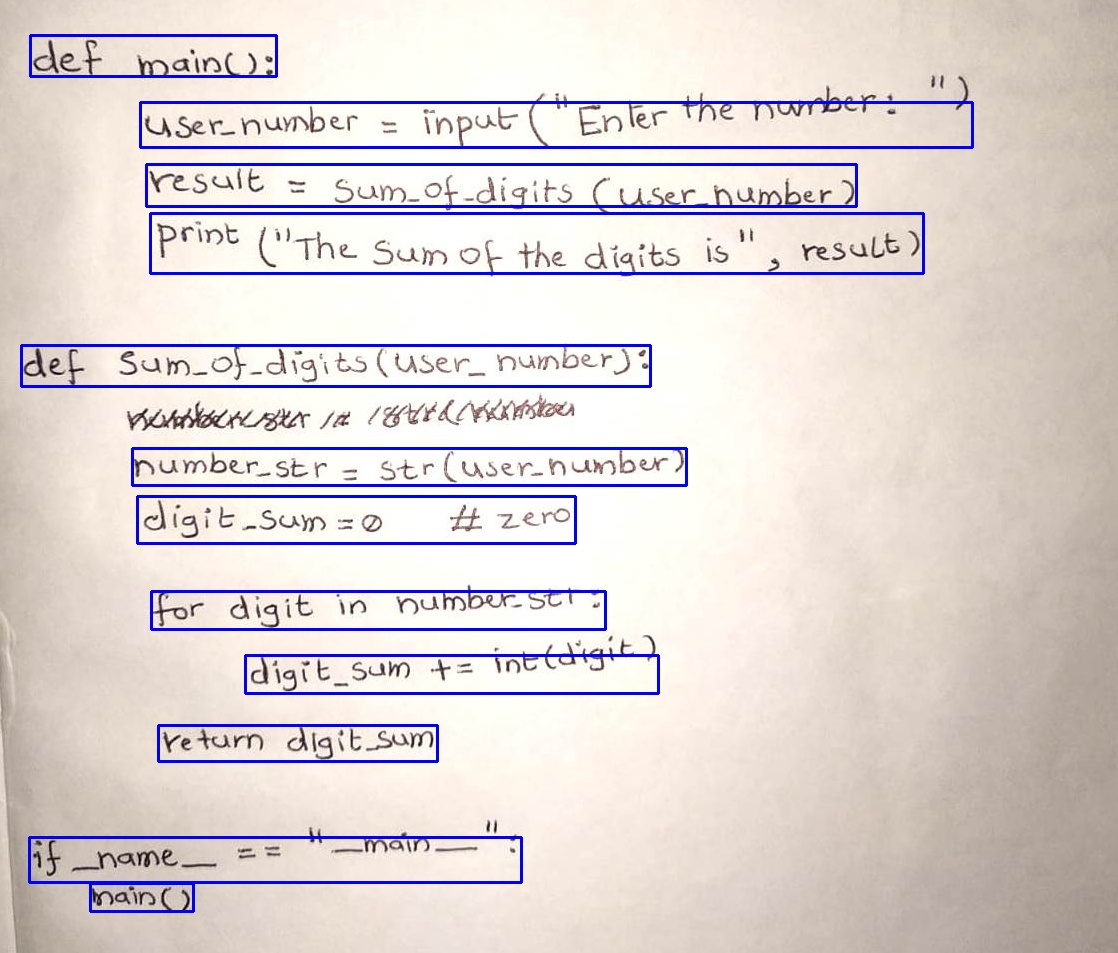 def main():
user_number = input("Enter the number: ")
result = sum_of_digits (user_number)
print ("The sum of the digits is", result)
def sum_of_digits(user_number):
number_str = str(user_number)
digit_sum = 0 # zero
for digit in number_str:
digit_sum += int(digit)
return digit_sum
if __name__ == "__main__":
main()